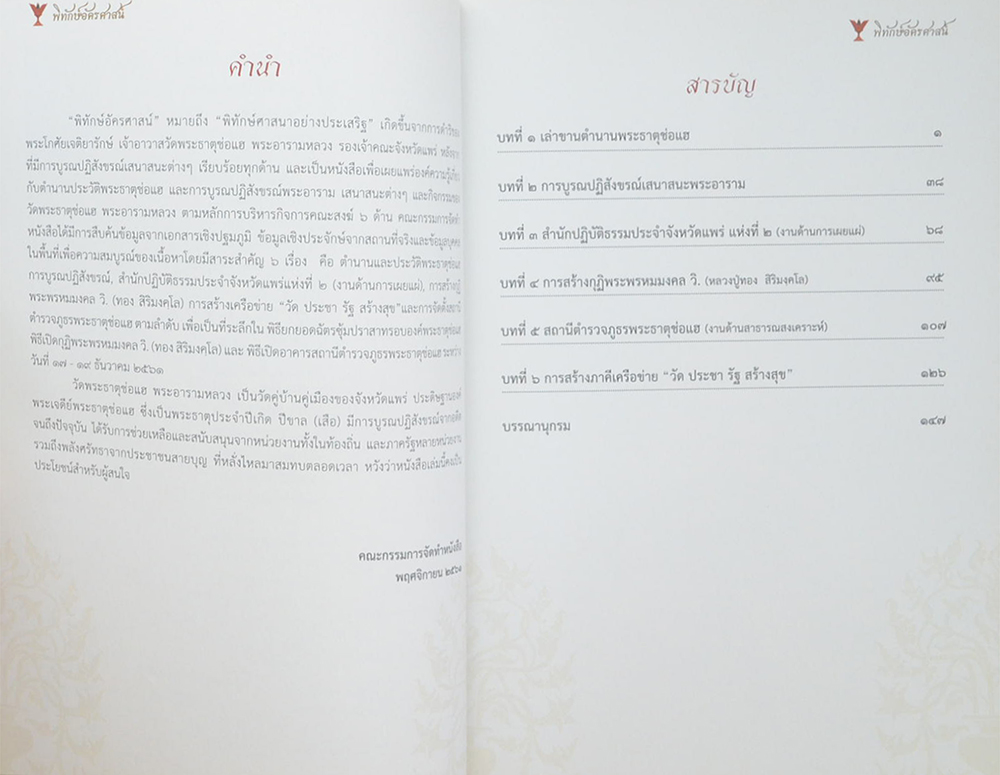 พิทักษ์อัครศาสน์
คำนำ
"พิทักษ์อัครศาสน์" หมายถึง "พิทักษ์ศาสนาอย่างประเสริฐ" เกิดขึ้นจากการดำริของ
พระโกศัยเจติยารักษ์ เจ้าอาวาสวัดพระธาตุช่อแฮ พระอารามหลวง รองเจ้าคณะจังหวัดแพร่ หลังจาก
ที่มีการบูรณปฏิสังขรณ์เสนาสนะต่างๆ เรียบร้อยทุกด้าน และเป็นหนังสือเพื่อเผยแพร่องค์ความรู้เกี่ยว
กับตำนานประวัติพระธาตุช่อแฮ และการบูรณปฏิสังขรณ์พระอาราม เสนาสนะต่างๆ และกิจกรรมของ
วัดพระธาตุช่อแฮ พระอารามหลวง ตามหลักการบริหารกิจการคณะสงฆ์ ๖ ด้าน คณะกรรมการจัดทำ
หนังสือได้มีการสืบค้นข้อมูลจากเอกสารเชิงปฐมภูมิ ข้อมูลเชิงประจักษ์จากสถานที่จริงและข้อมูลบุคคล
ในพื้นที่เพื่อความสมบูรณ์ของเนื้อหาโดยมีสาระสำคัญ ๖ เรื่อง คือ ตำนานและประวัติพระธาตุช่อแฮ
การบูรณปฏิสังขรณ์, สำนักปฏิบัติธรรมประจำจังหวัดแพร่แห่งที่ ๒ (งานด้านการเผยแผ่), การสร้างกุฏิ
พระพรหมมงคล วิ. (ทอง สิริมงคโล) การสร้างเครือข่าย "วัด ประชา รัฐ สร้างสุข"และการจัดตั้งสถานี
ตำรวจภูธรพระธาตุช่อแฮ ตามลำดับ เพื่อเป็นที่ระลึกใน พิธียกยอดฉัตรซุ้มปราสาทรอบองค์พระธาตุช่อแฮ
พิธีเปิดกุฏิพระพรหมมงคล วิ. (ทอง สิริมงคโล) และ พิธีเปิดอาคารสถานีตำรวจภูธรพระธาตุช่อแฮ ระหว่าง
วันที่ ๑๗ - ๑๙ ธันวาคม ๒๕๖๑
วัดพระธาตุช่อแฮ พระอารามหลวง เป็นวัดคู่บ้านคู่เมืองของจังหวัดแพร่ ประดิษฐานองค์
พระเจดีย์พระธาตุช่อแฮ ซึ่งเป็นพระธาตุประจำปีเกิด ปีขาล (เสือ) มีการบูรณปฏิสังขรณ์จากอดีต
จนถึงปัจจุบัน ได้รับการช่วยเหลือและสนับสนุนจากหน่วยงานทั้งในท้องถิ่น และภาครัฐหลายหน่วยงาน
รวมถึงพลังศรัทธาจากประชาชนสายบุญ ที่หลั่งไหลมาสมทบตลอดเวลา หวังว่าหนังสือเล่มนี้คงเป็น
ประโยชน์สำหรับผู้สนใจ
คณะกรรมการจัดทำหนังสือ
พฤศจิกายน ๒๕๖๑
พิทักษ์อัครศาสน์
สารบัญ
บทที่ ๑ เล่าขานตำนานพระธาตุช่อแฮ ๑
บทที่ ๒ การบูรณปฏิสังขรณ์เสนาสนะพระอาราม ๓๘
บทที่ ๓ สำนักปฏิบัติธรรมประจำจังหวัดแพร่ แห่งที่ ๒ (งานด้านการเผยแผ่) ๖๘
บทที่ ๔ การสร้างกุฏิพระพรหมมงคล วิ. (หลวงปู่ทอง สิริมงคโล) ๙๕
บทที่ ๕ สถานีตำรวจภูธรพระธาตุช่อแฮ (งานด้านสาธารณสงเคราะห์) ๑๐๗
บทที่ ๖ การสร้างภาคีเครือข่าย "วัด ประชา รัฐ สร้างสุข" ๑๒๖
บรรณานุกรม ๑๔๗